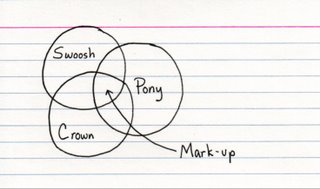 Swoosh
Pony
Crown
Mark-up